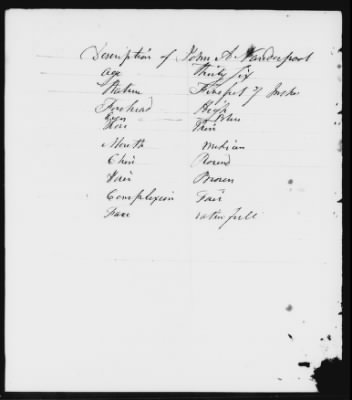 Description of John A Vanderpool
age Thirty Six
Stature Five feet 7 Inches
Forehead High
Eyes Blue
Nose Thin
Mouth Medium
Chin Round
Hair Brown
Complexion Fair
Face rather full